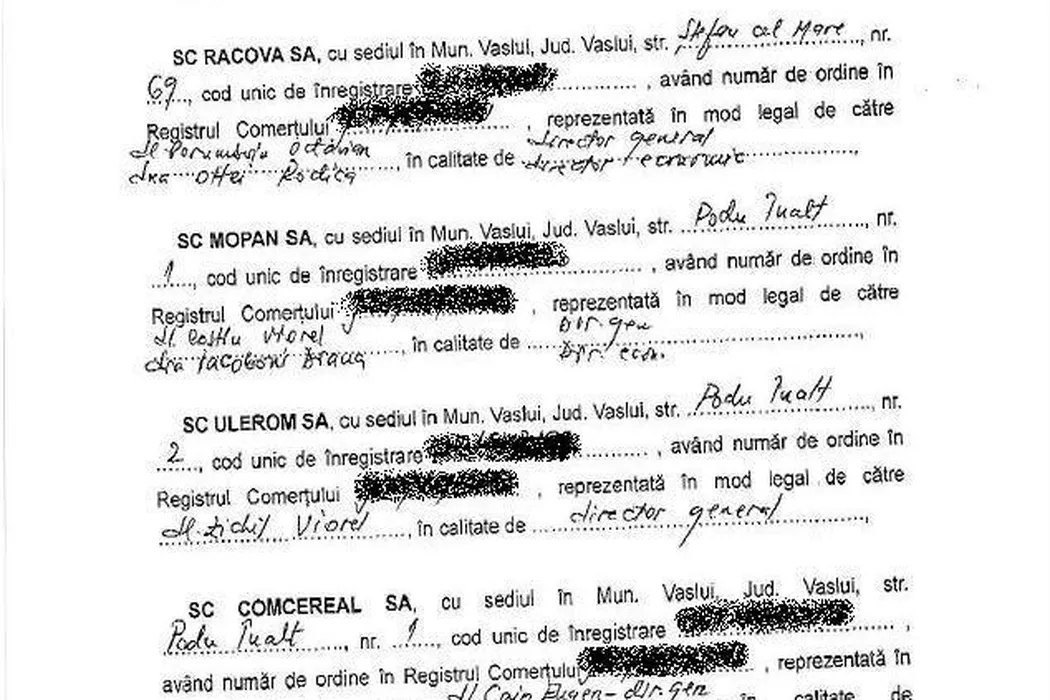 SC RACOVA SA, cu sediul în Mun. Vaslui, Jud. Vaslui, str. Ștefan cel Mare, nr.
69, cod unic de înregistrare , având număr de ordine în
Registrul Comerțului , reprezentată în mod legal de către
director general
dl Octavian
, în calitate de director economic
dna Rodica
SC MOPAN SA, cu sediul în Mun. Vaslui, Jud. Vaslui, str. Podu Înalt, nr.
1, cod unic de înregistrare , având număr de ordine în
Registrul Comerțului , reprezentată în mod legal de către
dl. Viorel Dir. gen
, în calitate de
dna Dir. econ.
SC ULEROM SA, cu sediul în Mun. Vaslui, Jud. Vaslui, str. Podu Înalt, nr.
2, cod unic de înregistrare , având număr de ordine în
Registrul Comerțului , reprezentată în mod legal de către
dl. Viorel, în calitate de director general,
SC COMCEREAL SA, cu sediul în Mun. Vaslui, Jud. Vaslui, str.
Podu Înalt, nr. 1, cod unic de înregistrare ,
având număr de ordine în Registrul Comerțului , reprezentată în
dl Eugen - dir. gen în calitate de